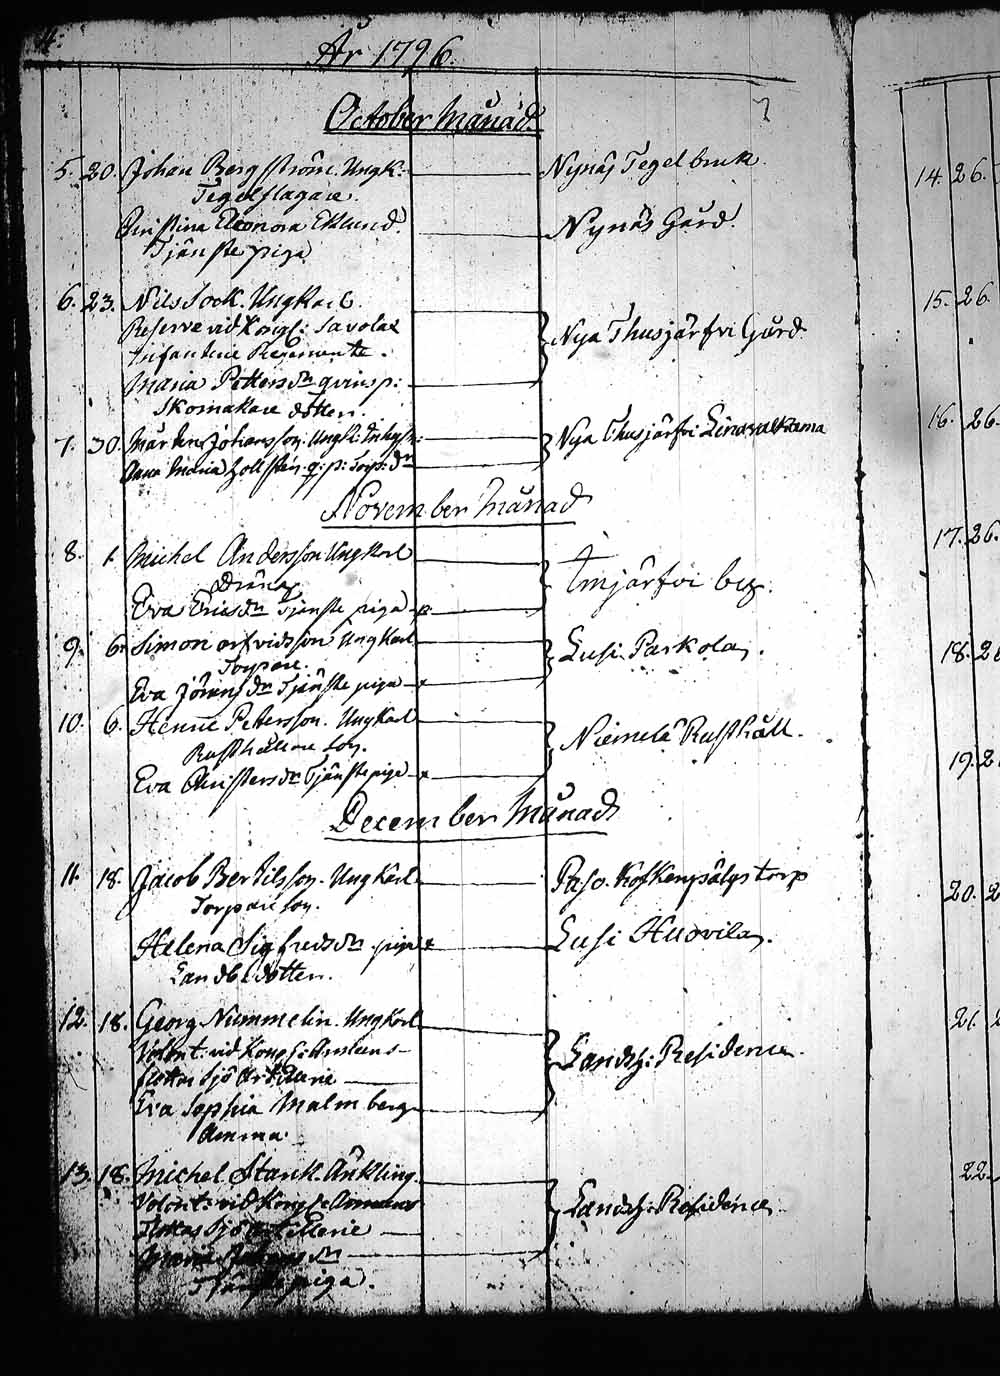 4.
År 1796.
October Månad.
5. 20. Johan Bergström. Ungk: Nynäs Tegelbruk
Tegelslagare.
Christina Eleonora Eklund. Nynäs Gård.
Tjänstepiga
6. 23. Nils Sock. Ungkarl.
Reserve vid Kongl: Savolax Nya Thusjärfvi Gård
Infanterie Regemente.
Maria Pettersdr qvinsp:
Skomakare dotter.
7. 30. Mårten Johansson. Ungk: Inhys: Nya Thusjärfvi
Anna Maria q: p: Torp: dr
November Månad
8. 1. Michel Andersson Ungkarl
Dräng Imjärfvi by.
Eva Ericsdr Tjänste piga
9. 6. Simon arfvidsson Ungkarl Lusi Parkola.
Torpare.
Eva Jöransdr Tjänste piga
10. 6. Henric Petersson. Ungkarl Niemelä Rusthåll.
Rusthållare son.
Eva Christersdr Tjänstepiga
December Månad
11. 18. Jacob Bertilsson. Ungkarl Paso torp
Torpare son.
Helena Sigfredsdr piga Lusi Huovila.
Landb: dotter.
12. 18. Georg Nummelin. Ungkarl
Volont: vid Kongl: Armeens Landsh: Residence.
flottas Sjö Artillerie
Eva Sophia Malmberg
Amma.
13. 18. Michel Stark. Änkling.
Volont: vid Kongl: Armeens Landsh: Residence
flottas Sjö Artillerie
Maria dr
Tjänste piga.
14. 26.
15. 26.
16. 26.
17. 26.
18. 2
19. 2
20. 2
21. 2
22.